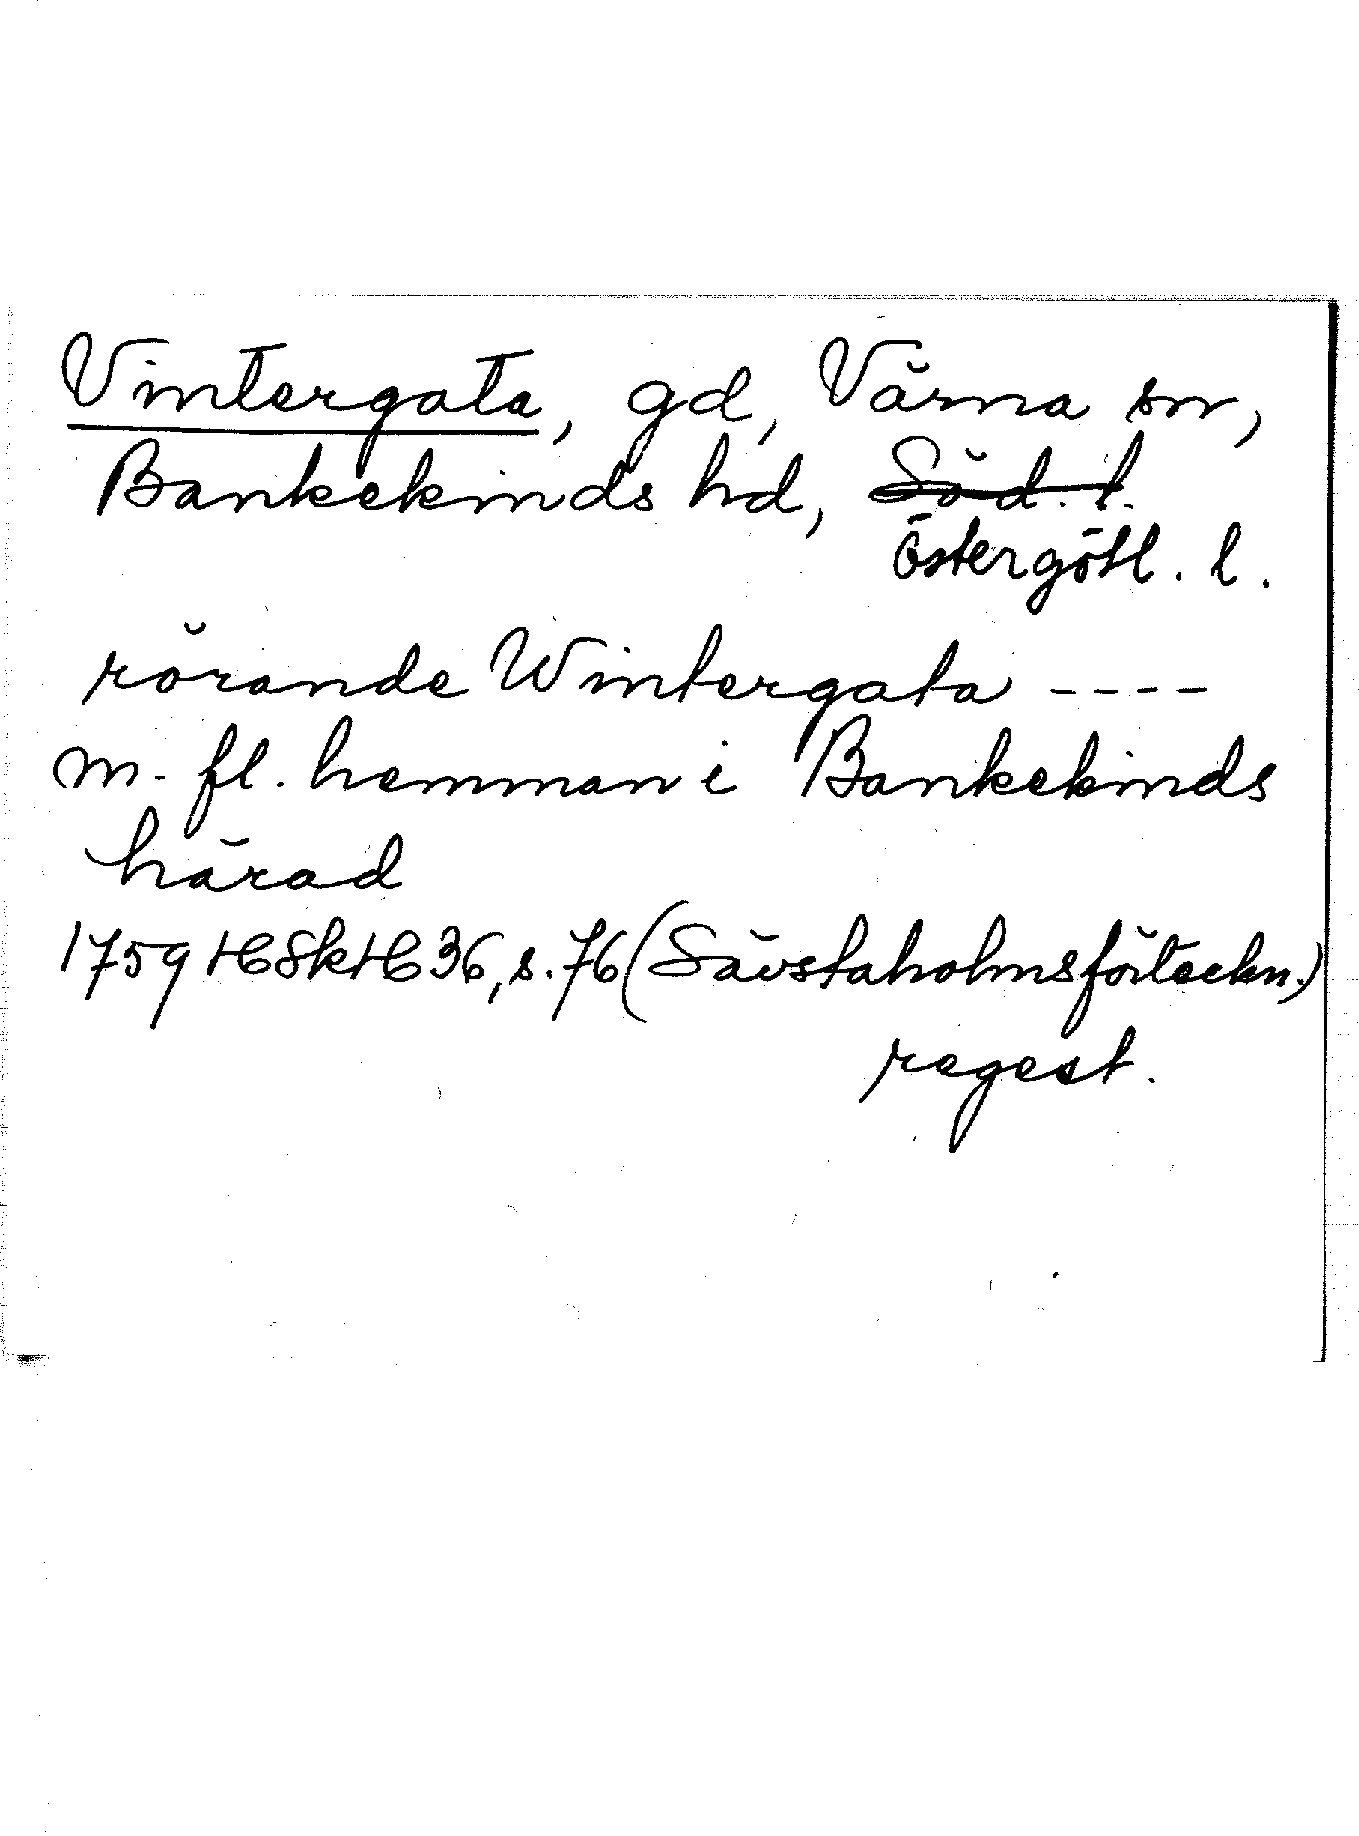 Vintergata, gd, Värna sn,
Bankekinds hd, Söd. l.
Östergötl. l.
rörande Wintergata ----
m. fl. hemman i Bankekinds
härad
1759 HSkH 36, s. 76 (Sävstaholmsförteckn.)
regest.